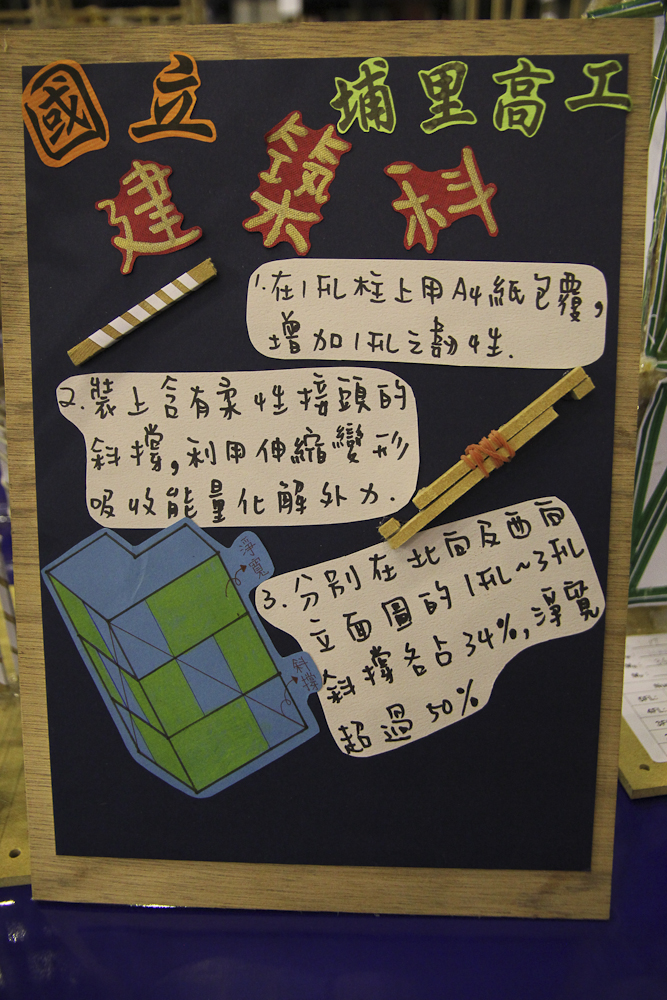 國立 埔里高工
建築科
1.在1FL柱上用A4紙包覆,
增加1FL之韌性.
2.裝上含有柔性接頭的
斜撐,利用伸縮變形
吸收能量化解外力.
3.分別在北向及西向
立面圖的1FL~3FL
斜撐各占34%,淨寬
超過50%
淨寬
斜撐